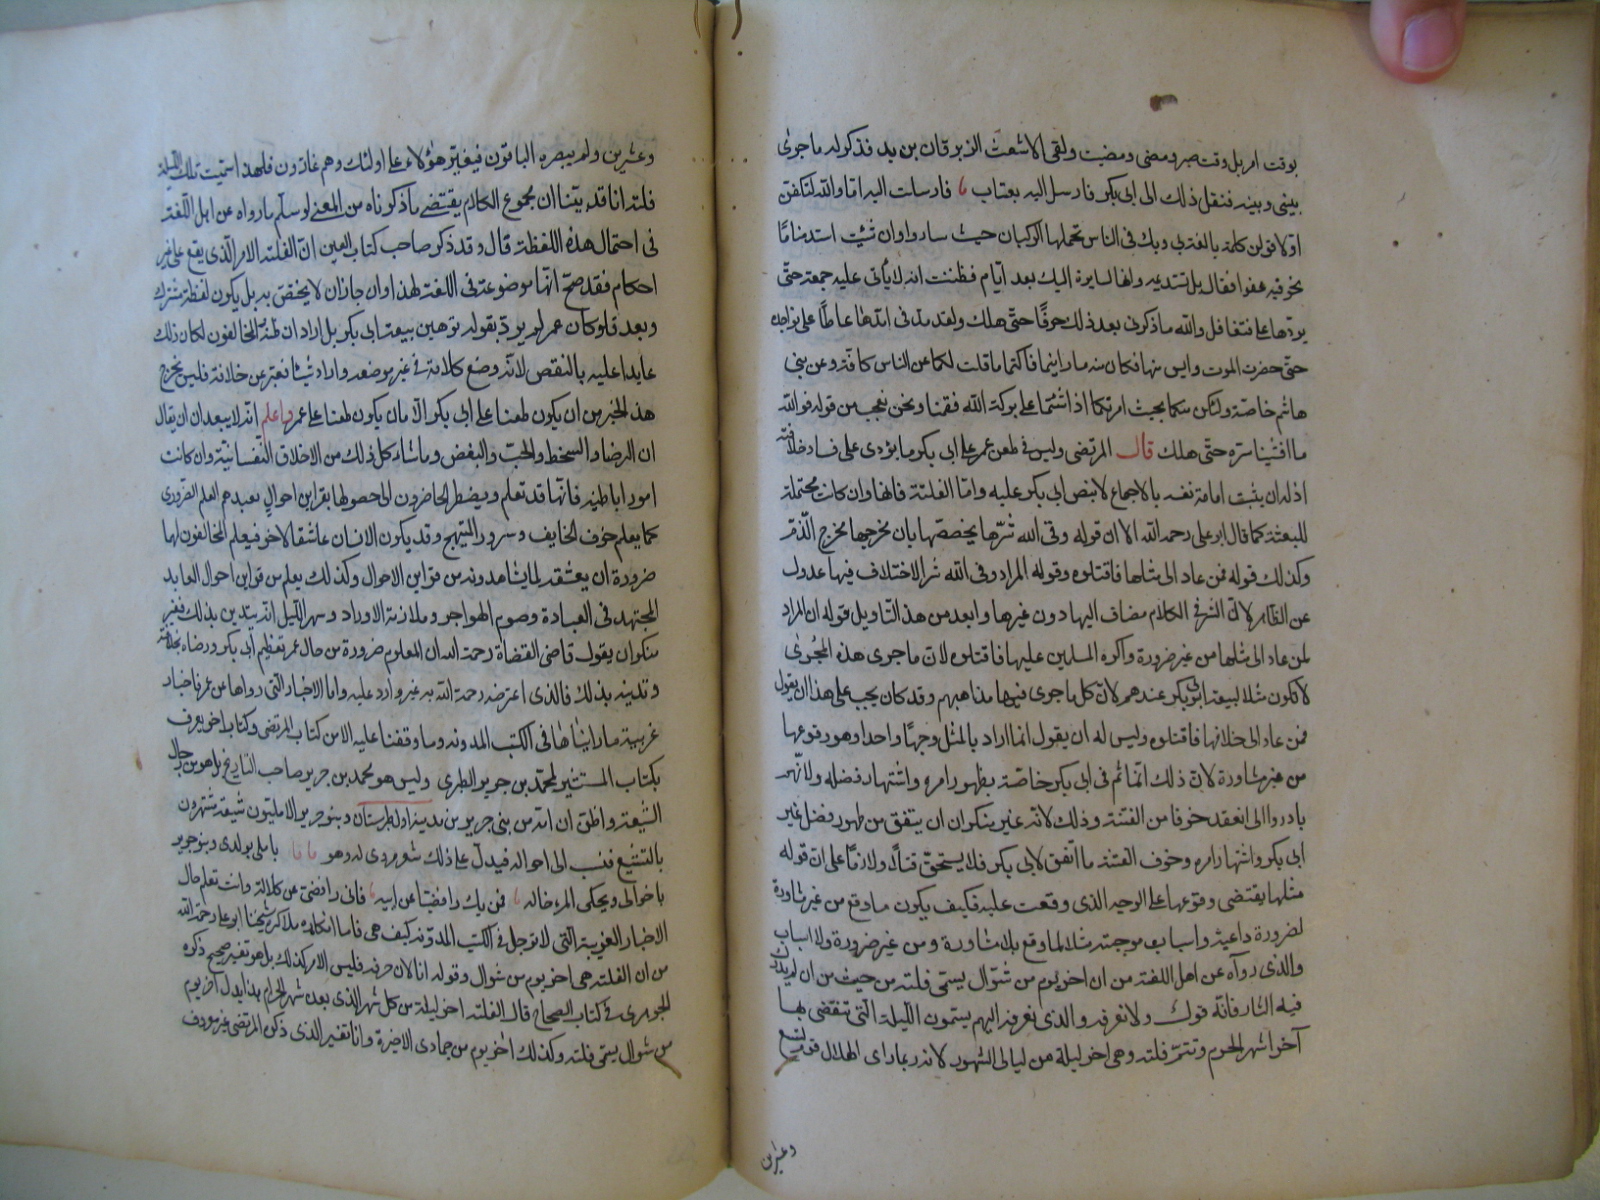 بوقت امر بل وقت صبر ومضى ومضيت ولقى الاشعث الزبرقان بن بدر فذكر له ما جرى
بينى وبينه فنقل ذلك الى ابى بكر فارسل اليه بعتاب فارسلت اليه اما والله لتكفن
اولاقولن كلمة بالغة بى وبك فى الناس تحملها الركبان حيث ساروا وان شئت استدمنا ما
نحن فيه عفوا فقال بل نستديمه وانها لصايرة اليك بعد ايام فظننت انه لا ياتى عليه جمعة حتى
يردها على فتغافل والله ما ذكرنى بعد ذلك حرفًا حتى هلك ولقد مد فى امدها عاضًا على نواجذه
حتى حضره الموت وايس منها فكان منه ما رايتما فاكتما ما قلت لكما عن الناس كافة وعن بنى
هاشم خاصة وليكن منكما بحيث امرتكما اذا شئتما على بركة الله فقمنا ونحن نعجب من قوله فوالله
ما افشينا سره حتى هلك قال المرتضى وليس فى طعن عمر على ابى بكر ما يؤدى على فساد خلافته
اذ له ان يثبت امامة نفسه بالاجماع لا بنص ابى بكر عليه واما الفلتة فانها وان كانت محتملة
للبغتة كما قال ابو على رحمه الله الا ان قوله وقى الله شرها يخصصها بان مخرجها مخرج الذم
وكذلك قوله فمن عاد الى مثلها فاقتلوه وقوله المراد وقى الله شر الاختلاف فيها عدول
عن الظاهر لان الشر فى الكلام مضاف اليها دون غيرها وابعد من هذا التاويل قوله ان المراد
لمن عاد الى مثلها من غير ضرورة واكره المسلمين عليها فاقتلوه لان ما جرى هذا المجرى
لا تكون مثلا لبيعة ابى بكر عندهم لان كل ما جرى فيها مذاهبهم وقد كان يجب على هذا ان يقول
فمن عاد الى خلافها فاقتلوه وليس له ان يقول انما اراد بالمثل وجهًا واحدا وهو وقوعها
من غير مشاورة لان ذلك انما تم فى ابى بكر خاصة بظهور امره واشتهار فضله ولانهم
بادروا الى العقد خوفا من الفتنة وذلك لانه غير منكر ان يتفق من ظهور فضل غير
ابى بكر واشتهار امره وخوف الفتنة ما اتفق لابى بكر فلا يستحق قتلًا ولا ذمًا على ان قوله
مثلها يقتضى وقوعها على الوجه الذى وقعت عليه فكيف يكون ما وقع من غير مشاورة
لضرورة داعية واسباب موجبة مثلا لما وقع بلا مشاورة ومن غير ضرورة ولا اسباب
والذى رواه عن اهل اللغة من ان اخر يوم من شوال يسمى فلتة من حيث من ان لم يدرك
فيه الثار فاته قولٌ ولا نعرفه والذى نعرفه انهم يسمون الليلة التى تنقضى بها
آخر اشهر الحرم وتتم فلتة وهى اخر ليلة من ليالى الشهور لانه ربما راى الهلال قوم لتسع
وعشرين
وعشرين ولم يبصره الباقون فيغير هؤلاء على اولئك وهم غارون فلهذا سميت تلك الليلة
فلتة انا قد بينا ان مجموع الكلام يقتضى ما ذكرناه من المعنى لو سلم ما رواه عن اهل اللغة
فى احتمال هذه اللفظة قال وقد ذكر صاحب كتاب العين ان الفلتة الامر الذى يقع على غير
احكام فقد صح انها موضوعة فى اللغة لهذا وان جاز ان لا يختص به بل يكون لفظة مشترك
وبعد فلو كان عمر لم يرد بقوله توهين بيعة ابى بكر بل اراد ان ظنه المخالفون لكان ذلك
عايدا عليه بالنقص لانه وضع كلامه فى غير موضعه واراد شيئا فعبر عن خلافه فليس يخرج
هذا الخبر من ان يكون طعنا على ابى بكر الا بان يكون طعنا على عمر واعلم انه لا يبعد ان يقال
ان الرضا والسخط والحب والبغض وما شاء كل ذلك من الاخلاق النفسانية وان كانت
امورا باطنة فانها قد تعلم ويضطر الحاضرون الى حصولها بقراين احوال تفيدهم العلم الضرورى
كما يعلم خوف الخايف وسرور المبتهج وقد يكون الانسان عاشقا لاخر فيعلم المخالفون لها
ضرورة ان يعشقه لما يشاهدونه من قراين الاحوال وكذلك يعلم من قراين احوال العابد
المجتهد فى العبادة وصوم الهواجر وملازمة الاوراد وسهر الليل انه يتدين بذلك فغير
منكر ان يقول قاضى القضاة رحمه الله ان المعلوم ضرورة من حال عمر تعظيم ابى بكر ورضاه بخلافته
وتدينه بذلك فالذى اعترضه رحمه الله به غير وارد عليه واما الاخبار التى رواها عن عمر فاخبار
غريبة ما رايناها فى الكتب المدونة وما وقفنا عليه الا من كتاب المرتضى وكتاب اخر يعرف
بكتاب المستنير لمحمد بن جرير الطبرى وليس هو محمد بن جرير صاحب التاريخ بل هو من رجال
الشيعة واظن ان امه من بنى جرير من مدينة امل طبرستان وبنو جرير الامليون شيعة مشتهرون
بالتشيع فنسب الى اخواله فيدل على ذلك شعر مروى له وهو بامل مولدى وبنو جرير
باخوالى ويحكى المرء خاله فمن يك رافضيًا عن ابيه فانى رافضى عن كلالة وانت تعلم حال
الاخبار الغريبة التى لا توجد فى الكتب المدونة كيف هى فاما انكاره ما ذكره شيخنا ابو على رحمه الله
من ان الفلتة هى اخر يوم من شوال وقوله انا لا نعرفه فليس الامر كذلك بل هو تفسير صحيح ذكره
الجوهرى فى كتاب الصحاح قال الفلتة اخر ليلة من كل شهر الذى بعده شهر الحرام بهذا يدل اخر يوم
من شوال يسمى فلتة وكذلك اخر يوم من جمادى الاخرة وانا تفسير الذى ذكره المرتضى غير معروف